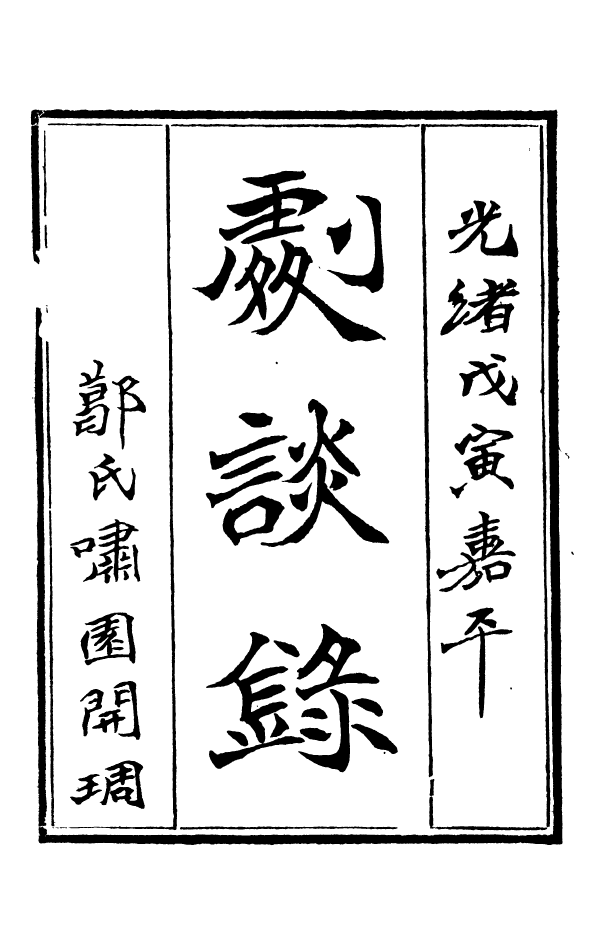 光緒戊寅嘉平
劇談錄
氏嘯園開琱